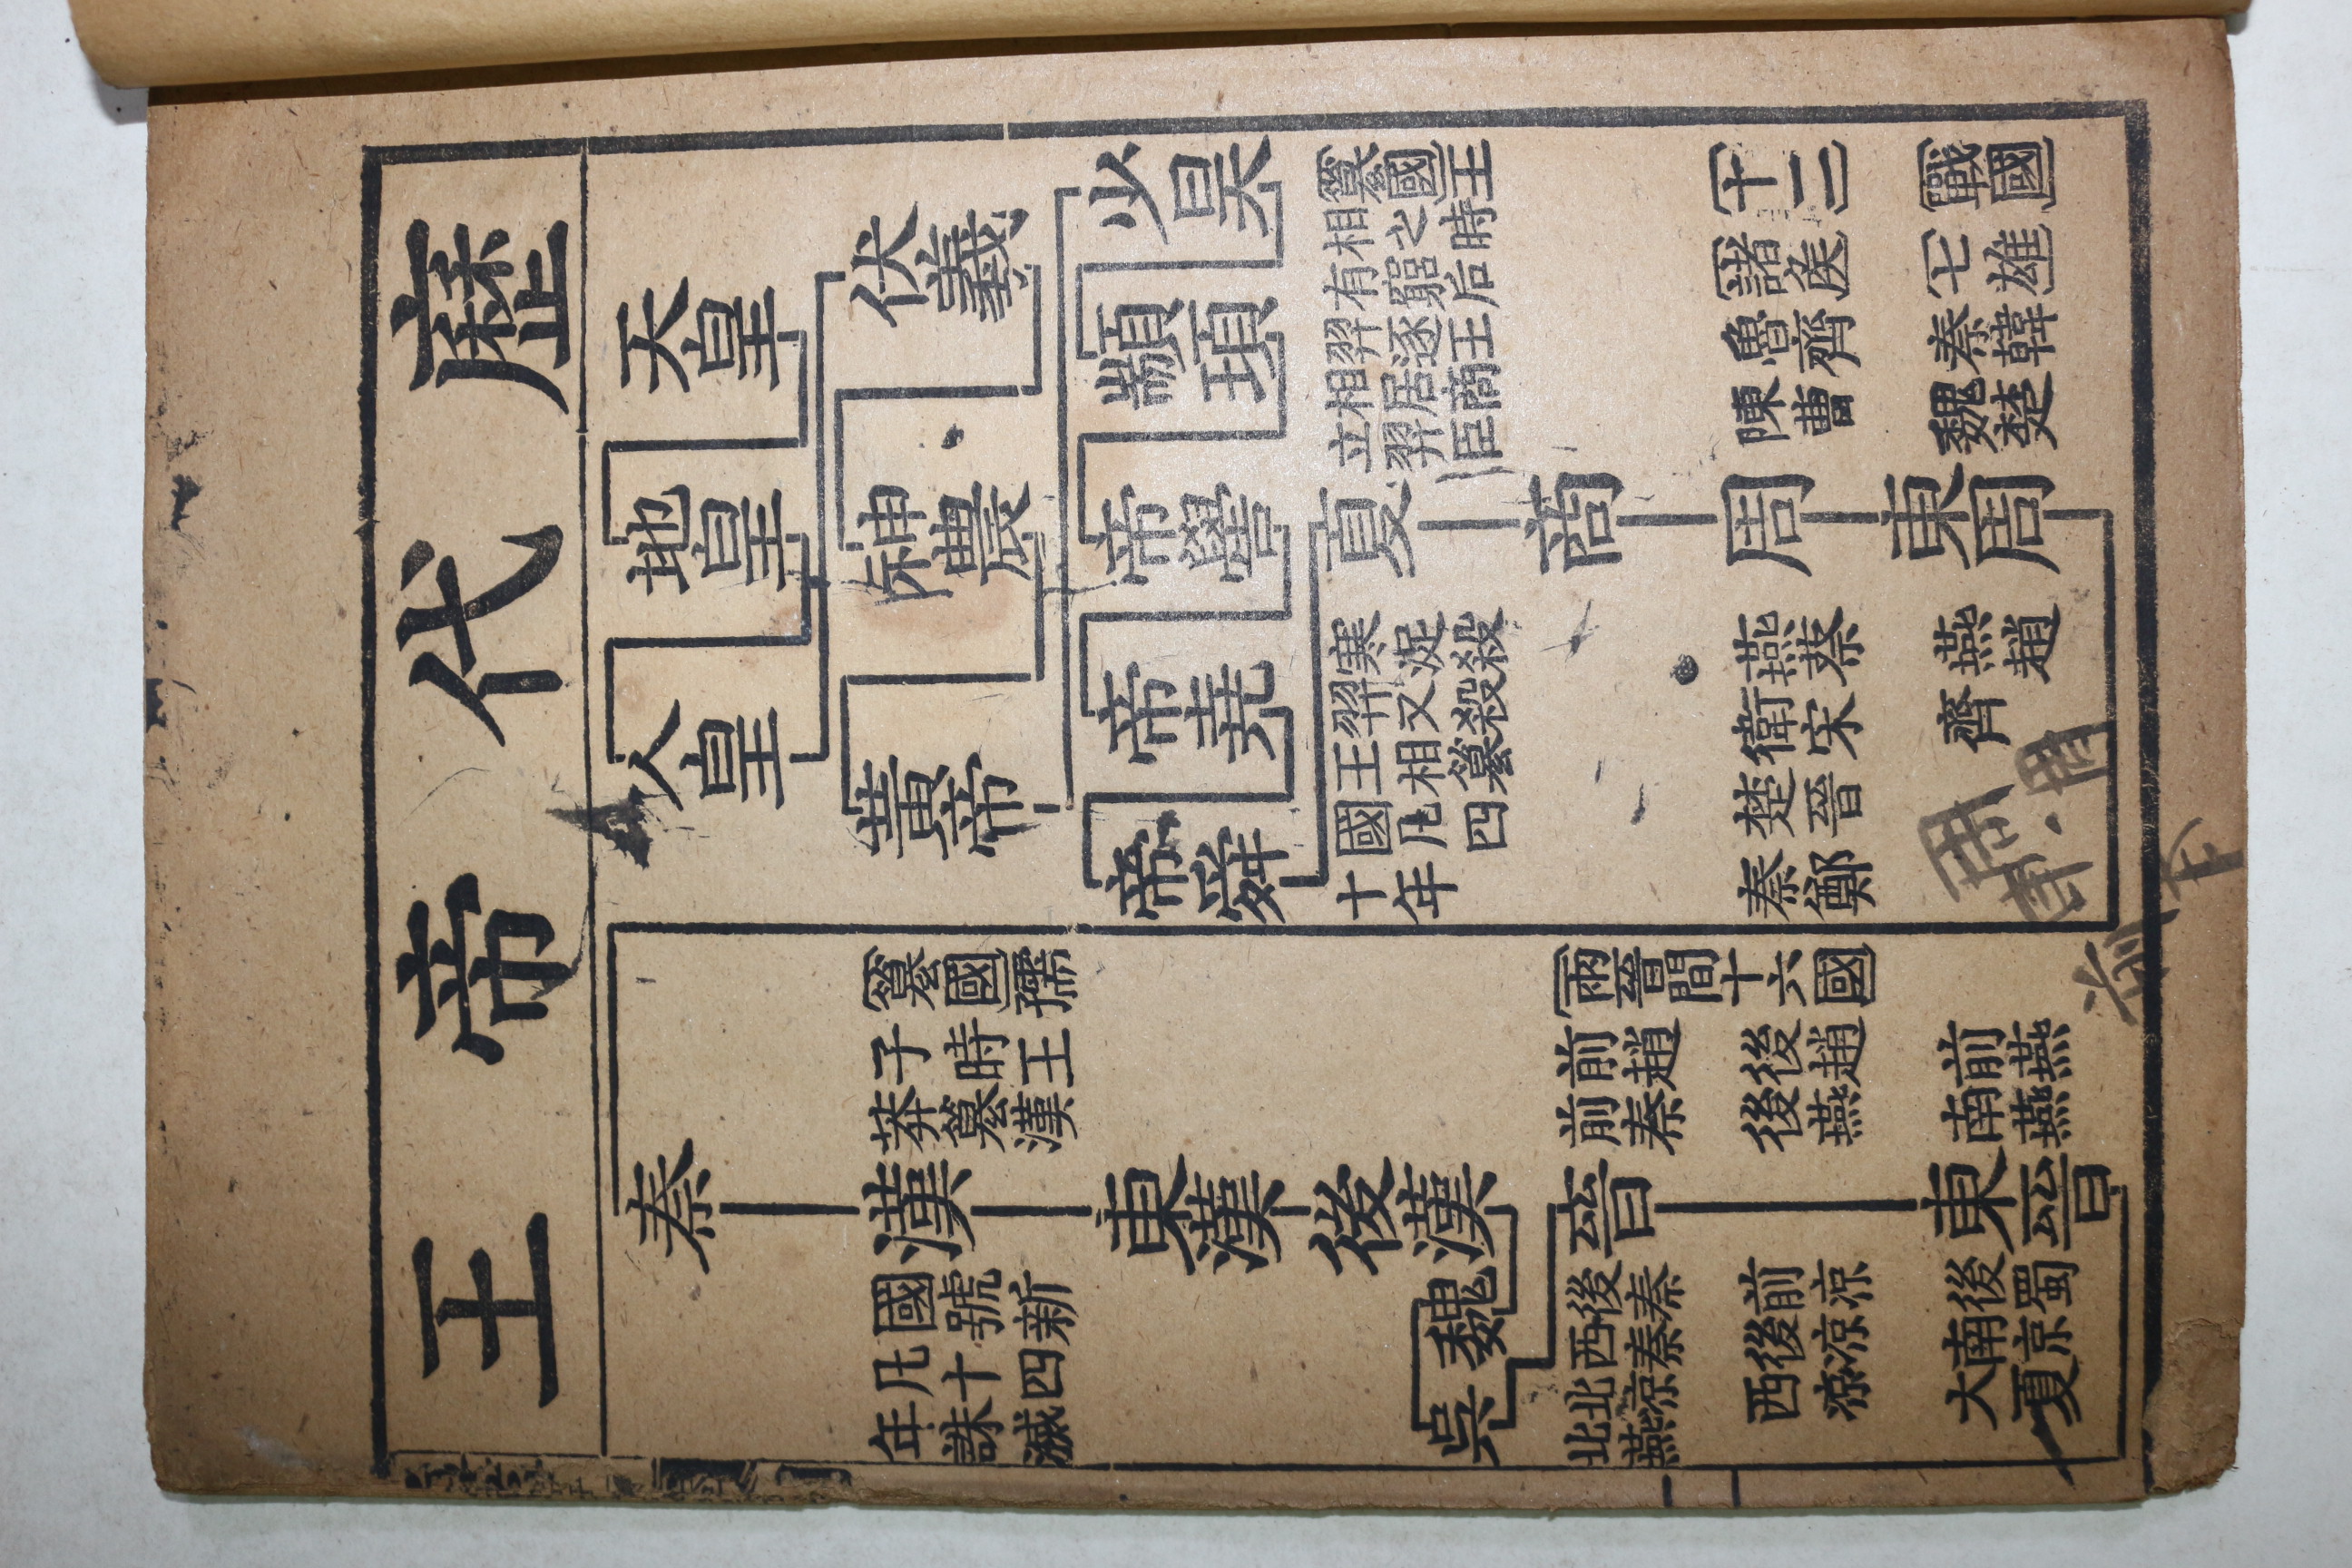 歷代帝王
天皇
地皇
人皇
伏羲
神農
黃帝
少昊
顓頊
帝嚳
帝堯
帝舜
纂國王
相之時
有窮后
羿逐王
相居商
立羿臣
夏
寒浞殺
羿又殺
王相纂
國凡四
十年
商
十二
諸侯
魯齊
陳曹
周
燕蔡
衛宋
楚晉
秦鄭
戰國
七雄
秦韓
魏楚
東周
燕趙
齊
秦
纂國孺
子時王
莽纂漢
漢
國號新
凡十四
年誅滅
東漢
後漢
魏
吳
兩晉間十六國
前趙
前秦
晉
後秦
西秦
北凉
北燕
後趙
後燕
前凉
後凉
西凉
前燕
南燕
東晉
後蜀
南凉
大夏